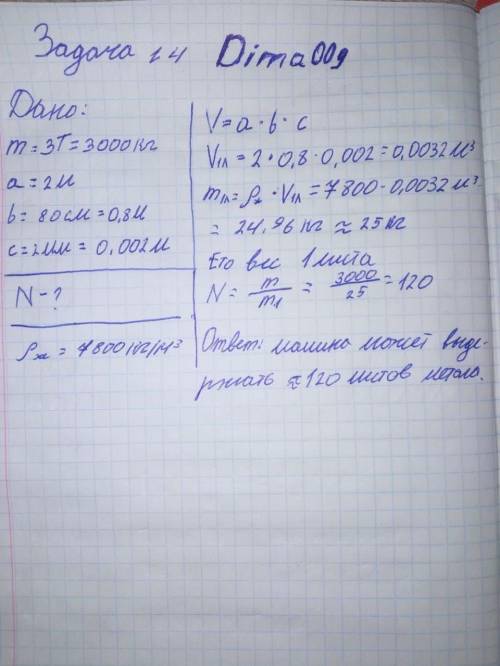 Задача 14 Dima009
Дано:
m = 3Т = 3000 кг
a = 2м
b = 80 см = 0,8м
c = 2мм = 0,002м
N - ?
ρж = 7800 кг/м³
V = a · b · c
V1л = 2 · 0,8 · 0,002 = 0,0032 м³
m1л = ρж · V1л = 7800 · 0,0032 м³
= 24,96 кг ≈ 25 кг
Ето вес 1 листа
N = m/m1 = 3000/25 = 120
Ответ: машина может выде-
ржать ≈ 120 листов метала.